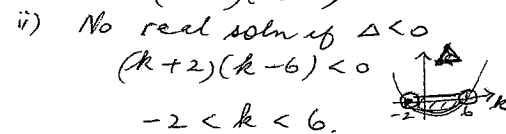 ii) No real soln if Δ<0
(k+2)(k-6)<0
Δ
-2 6 k
-2 < k < 6.